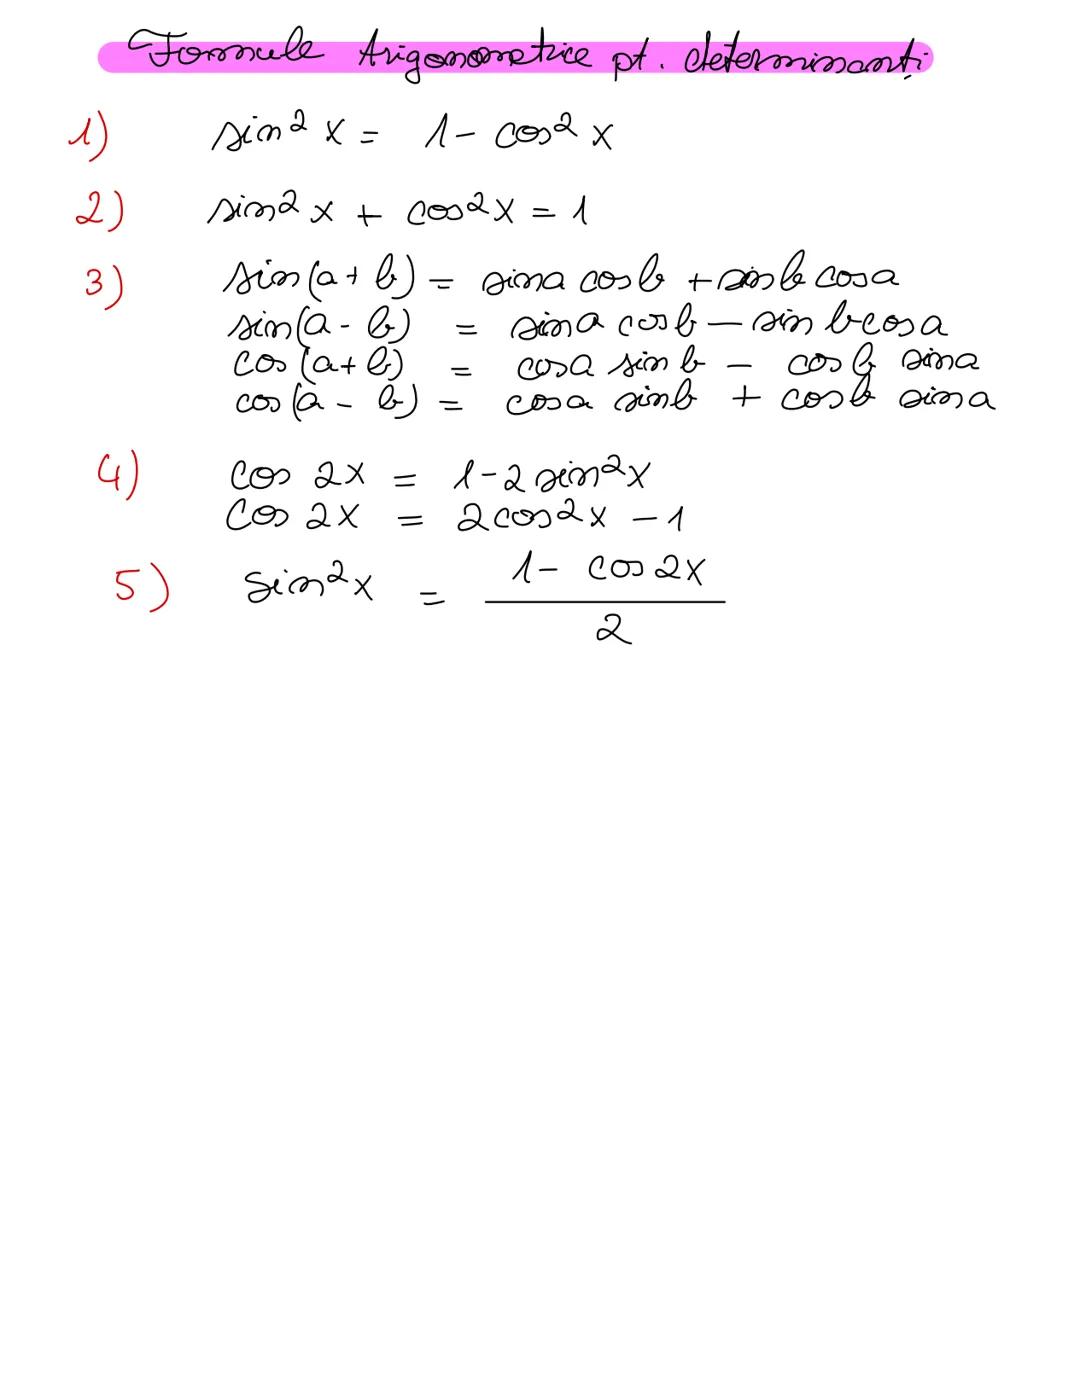 Formule trigonometrice pt. determinanți
1) sin² x = 1 - cos² x
2) sin² x + cos² x = 1
3) sin(a + b) = sin a cos b + sin b cos a
sin(a - b) = sin a cos b - sin b cos a
cos(a + b) = cos a sin b - cos b sin a
cos(a - b) = cos a sin b + cos b sin a
4) cos 2x = 1 - 2 sin² x
cos 2x = 2 cos² x - 1
5) sin² x = (1 - cos 2x) / 2